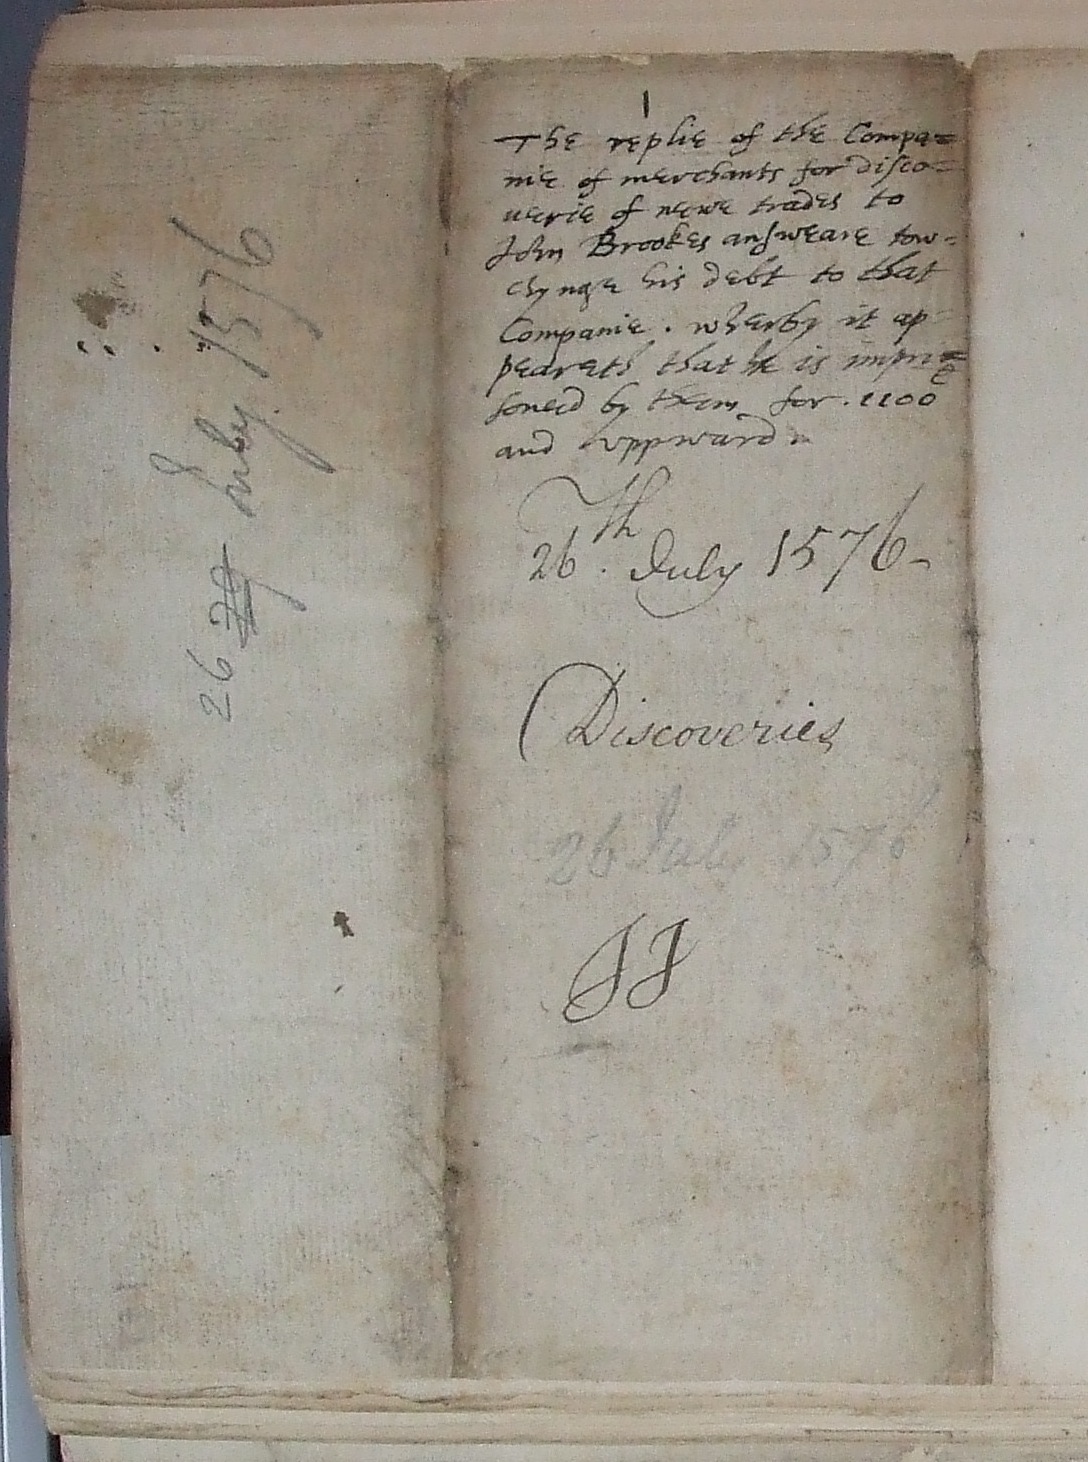 1
The replie of the Compa=
nie of merchants for disco=
uerie of newe trades to
John Brookes answeare tow=
chynge his debt to that
Companie . wherby it ap
peareth that he is impri=
soned by them for . 1100
and vppward
26th . July 1576 -
Discoveries
26 July 1576
26 July 1576